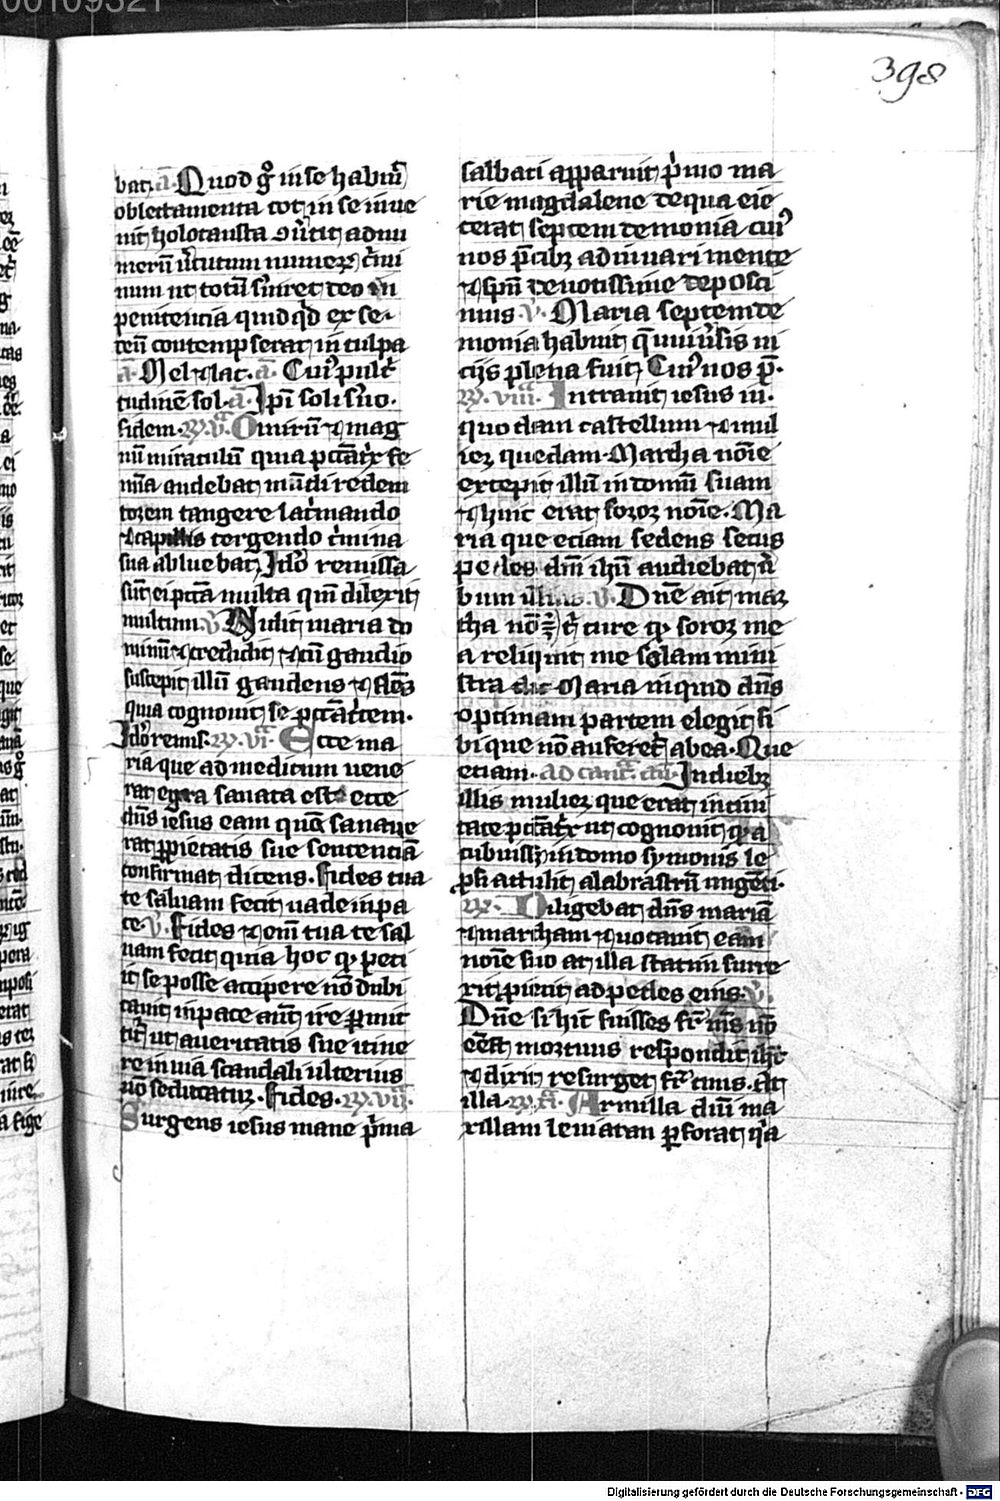 00109321
398
bat. a. Quod gͦ in se habuit
oblectamenta tot in se inue
nit holocausta ꝯuertit ad nu
merū uirtutum numerꝫ crimi
num ut totū seruiret deo in
penitencia quid qd ex se
deū contempserat in culpa
a. Mel ⁊ lac. a. Cuiꝰ pulcr
tudinē sol. a. Ipi soli suo.
fidem. R. v. O mirū ⁊ mag
nū miraculū quia pctātrix fe
mīa audebat mūdi redem
torem tangere lacrimando
⁊ capillis tergendo crimina
sua abluebat Ido remissa
sūt ei pctā multa qm̄ dilexit
multum v. Audiit maria do
minū ⁊ credidit ⁊ cū gaudio
suscepit illū gaudens ⁊ flēs
quia cognouit se pctātricem.
Ido remis. R. vi. Ecce ma
ria que ad medicum uene
rat egra sanata est ecce
dn̄s iesus eam quā sanaue
rat ꝓpietatis sue sentenciā
confirmat dicens. Fides tua
te saluam fecit uade in pa
ce. v. Fides ⁊ om̄ tua te sal
uam fecit quia hoc qꝫ peci
it se posse accipere nō dubi
tauit in pace aut ire ꝑmit
tit ut a ueritatis sue itine
re in uiā scandali ulterius
nō seducatur. Fides. R. vii.
Surgens iesus mane prima
sabbati apparuit primo ma
rie magdalene de qua eie
cerat septem demonia cuiꝰ
nos p̄cibꝫ adiuuari mente
⁊ spū deuotissime deposci
mus. v. Maria septem de
monia habuit q̄ uniuersis ui
ciis plena fuit Cuiꝰ nos p̄.
R. viii. Intrauit iesus in.
quoddam castellum ⁊ mul
ier quedam Martha noīe
excepit illū in domū suam
⁊ huic erat soror noīe. Ma
ria que eciam sedens secus
pedes dn̄i ihū audiebat u
bum illius. v. Dn̄e ait mar
tha nō ē t cure qꝫ soror me
a reliquit me solam mini
stra dic Maria inquid dn̄s
optimam partem elegit si
bi que nō auferet ab ea. Que
eciam. ad cant. an. In diebꝫ
illis mulier que erat in ciui
tate pctātrix ut cognouit qa
cubuisset in domo symonis le
prosi attulit alabrastrū ungēti.
R. Diligebat dn̄s mariā
⁊ martham ⁊ uocauit eam
noīe suo at illa statim surre
xit ꝓiecit ad pedes eius. v.
Dn̄e si hic fuisses fr m̄s nō
eēt mortuus respondit ihc
⁊ dixit resurget fr tuus. At
illa. R. Armilla dn̄i ma
xillam leuiatan ꝑforat qa
Digitalisierung gefördert durch die Deutsche Forschungsgemeinschaft - DFG